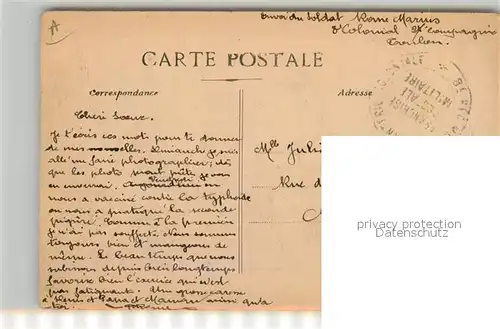 Envoi du Soldat Rome Marius
8e Colonial 2e Compagnie
Toulon.
CARTE POSTALE
Correspondance
Adresse
FRANCHISE
MILITAIRE
Chère Soeur.
Je t'écris ces mots pour te donner
de mes nouvelles. Dimanche je suis
allé me faire photographier, dès
que les photos seront prêtes je vous
en enverrai. Vendredi on
nous a vacciné contre la typhoïde
on nous a pratiqué la seconde
piqûre. Comme à la première
je n'ai pas souffert. Nous sommes
toujours bien et mangeons de
même. Le beau temps que nous
subissons depuis bien longtemps
favorise bien l'exercice qui n'est
pas fatiguant. Une grosse caresse
à et et Maman ainsi qu'à
toi.
Mlle
Rue
privacy protection
watermark